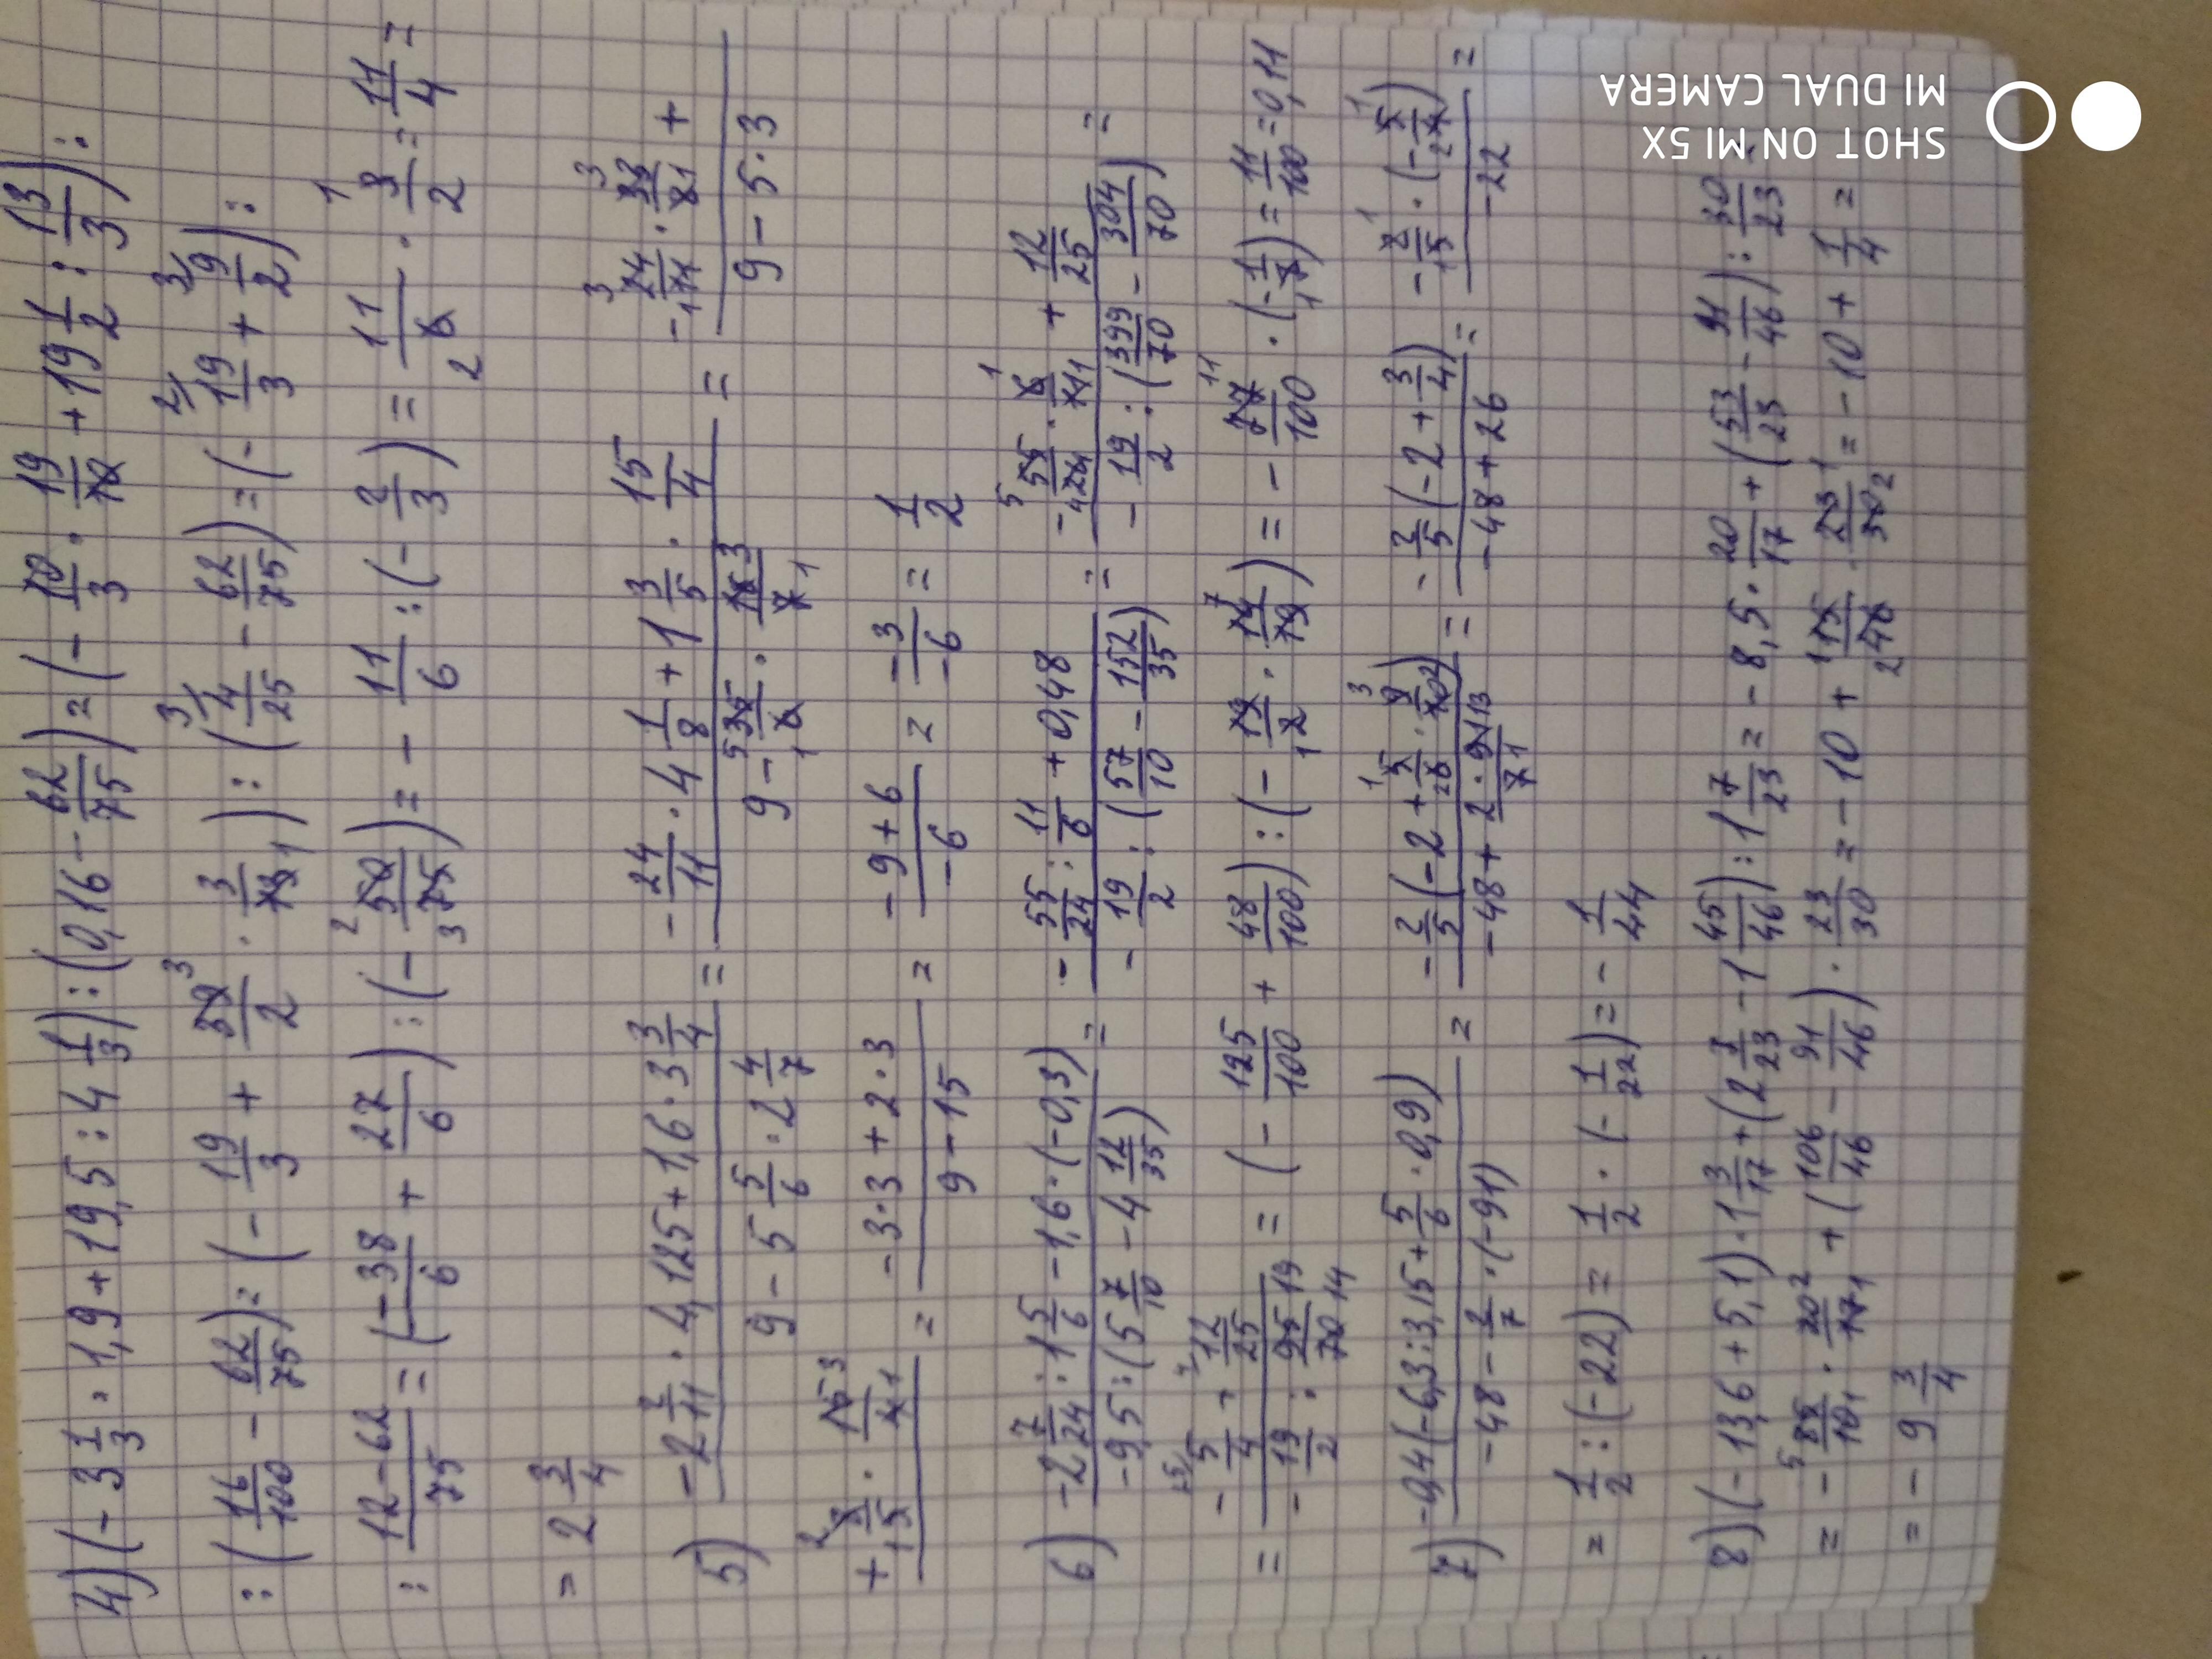 4) (- 3 1/3 · 1,9 + 19,5 : 4 1/3) : (0,16 - 62/75) = (- 10/3 · 19/10 + 19 1/2 : 13/3) :
: (16/100 - 62/75) = (- 19/3 + 39/2 · 3/13) : (4/25 - 62/75) = (- 19/3 + 9/2) :
: 12-62/75 = (-38/6 + 27/6) : (- 50/75) = - 11/6 : (- 2/3) = 11/6 · 3/2 = 11/4 =
= 2 3/4
5) -2 2/11 · 4,125 + 1,6 · 3 3/4 / 9 - 5 5/6 · 2 4/7 = - 24/11 · 4 1/8 + 1 3/5 · 15/4 / 9 - 35/6 · 18/7 = - 24/11 · 33/8 + / 9 - 5·3
+ 8/5 · 15/4 = -3·3 + 2·3 / 9 - 15 = -9+6 / -6 = -3/-6 = 1/2
6) -2 7/24 : 1 5/6 - 1,6 · (-0,3) / -9,5 : (5 7/10 - 4 12/35) = - 55/24 : 11/6 + 0,48 / - 19/2 : (57/10 - 152/35) = - 55/24 · 6/11 + 12/25 / - 19/2 : (399/70 - 304/70) =
= - 5/4 + 12/25 / - 19/2 : 95/70 = (- 125/100 + 48/100) : (- 19/2 · 14/19) = - 77/100 · (- 1/7) = 11/100 = 0,11
7) -0,4 (-6,3 : 3,15 + 5/6 · 0,9) / -48 - 2/7 · (-91) = - 2/5 (-2 + 5/6 · 9/10) / -48 + 2·91/7 = - 2/5 (-2 + 3/4) / -48 + 26 = - 2/5 · (- 5/4) / -22 =
= 1/2 : (-22) = 1/2 · (- 1/22) = - 1/44
8) (-13,6 + 5,1) · 1 3/17 + (2 7/23 - 1 45/46) : 1 7/23 = - 8,5 · 20/17 + (53/23 - 91/46) : 30/23 =
= - 85/10 · 20/17 + (106/46 - 91/46) · 23/30 = - 10 + 15/46 · 23/30 = - 10 + 1/4 =
= - 9 3/4
SHOT ON MI 5X
MI DUAL CAMERA